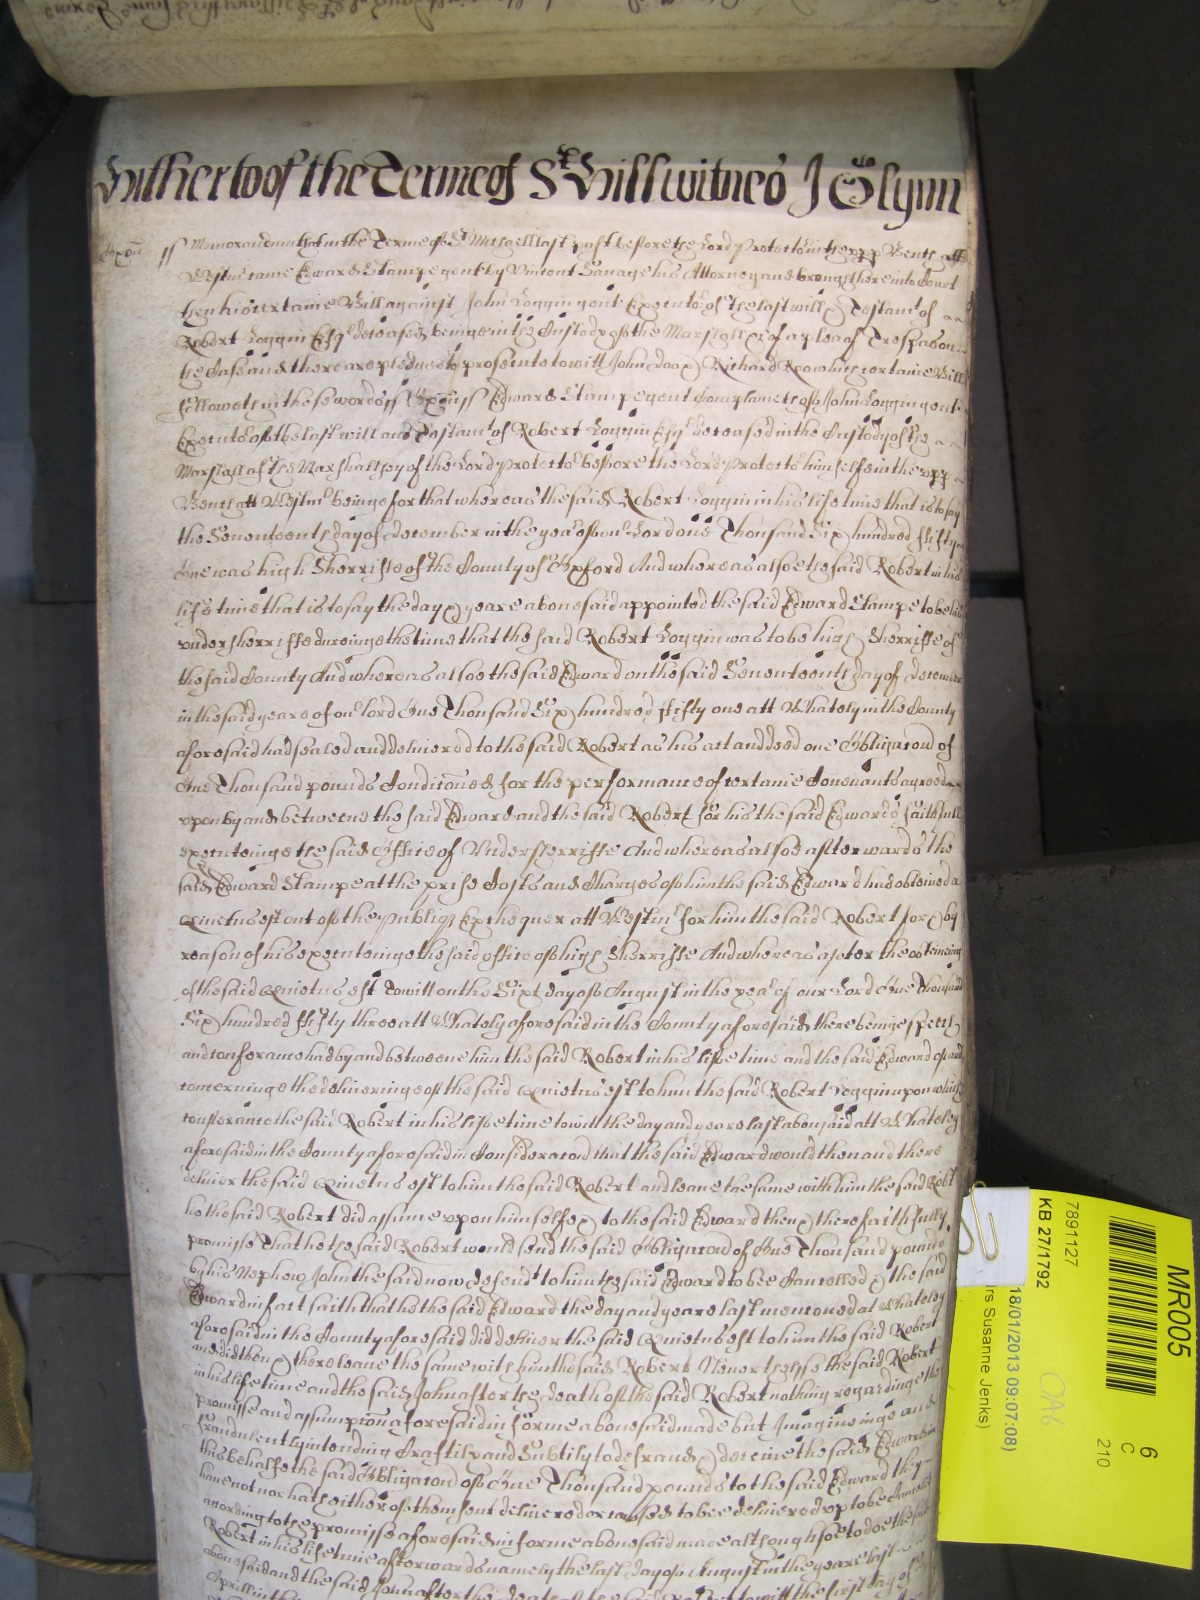 Hitherto of the Terme of St Hill witnes J Glynn
Oxon ss Memorandum that in the Terme of St Michaell last past before the Lord Protector in the upp Bench att
Westmr came Edward Stampe gent by Vincent Savage his Attorney and brought here into Court
then his certaine Bill against John Loggin gent Executor of the last will & Testamt of
Robert Loggin Esqr deceased beinge in the Custody of the Marshall &c of a plea of Trespas on
the Case and there are pledges to prosecute to witt John Doo & Richard Roo which certaine Bill
followeth in these words ss Oxon ss Edward Stampe gent Complaineth of John Loggin gent
Executor of the last will and Testamt of Robert Loggin Esqr deceased in the Custody of the
Marshall of the Marshallsey of the Lord Protector before the Lord Protector himselfe in the upp
Bench att Westmr beinge for that whereas the said Robert Loggin in his life time that is to say
the Seventeenth day of December in the year of our Lord one Thousand Six hundred fifty
One was high Sherriffe of the County of Oxford And whereas alsoe the said Robert in his
life time that is to say the day & yeare abovesaid appointed the said Edward Stampe to be his
undersherriffe dureinge the time that the said Robert Loggin was to be high Sherriffe of
the said County And whereas alsoe the said Edward on the said Seventeenth day of December
in the said yeare of our lord One Thousand Six hundred fifty one att Whately in the County
aforesaid had sealed and delivered to the said Robert as his act and deed one Obligacon of
One Thousand pounds Condiconed for the performance of certaine Covenants agreed
upon by and betweene the said Edward and the said Robert for his the said Edwards faithfull
executeinge the said Office of Undersherriffe And whereas alsoe afterwards the
said Edward Stampe at the prise Costs and Charges of him the said Edward had obteined a
Quietus est out of the publiq Exchequer att Westmr for him the said Robert for & by
reason of his executeinge the said office of high Sherriffe And whereas after the obteining
of the said Quietus est to witt on the Sixt day of August in the year of our Lord One Thousand
Six hundred fifty three att Whately aforesaid in the County aforesaid there beinge speech
and conferance had by and betweene him the said Robert in his life time and the said Edward of and
concerninge the deliveringe of the said Quietus est to him the said Robert Loggin upon which
conferance the said Robert in his life time to witt the day and yeare last abovesaid att Whateley
aforesaid in the County aforesaid in Consideracon that the said Edward would then and there
deliver the said Quietus est to him the said Robert and leave the same with him the said Robt
he the said Robert did assume upon himselfe & to the said Edward then & there faithfully
promisse That he the said Robert would send the said Obligacon of One Thousand pounds
by his Nephew John the said now defendt to him the said Edward to bee Cancelled & the said
Edward in fact saith that he the said Edward the day and yeare last menconed at Whateley
aforesaid in the County aforesaid did deliver the said Quietus est to him the said Robert
and did then & there leave the same with him the said Robert Neverthelesse the said Robert
in his life time and the said John after the death of the said Robert nothing regardinge the
promisse and assumpcon aforesaid in forme abovesaid made but Imagineinge and
fraudulently intending Craftily and Subtily to defraud & deceive the said Edward in
this behalfe the said Obligacon of One Thousand pounds to the said Edward they
have not nor hath either of them sent delivered or caused to bee delivered up to be Cancelled
according to the promisse aforesaid in forme abovesaid made although soe to doe the said
Robert in his life time afterwards namely the last day of August in the yeare last
abovesaid and the said John after the death of the said Robert to witt the first day of
Aprill in the
MR005
6
C
210
7891127
KB 27/1792
OA6
18/01/2013 09:07:08)
rs Susanne Jenks)